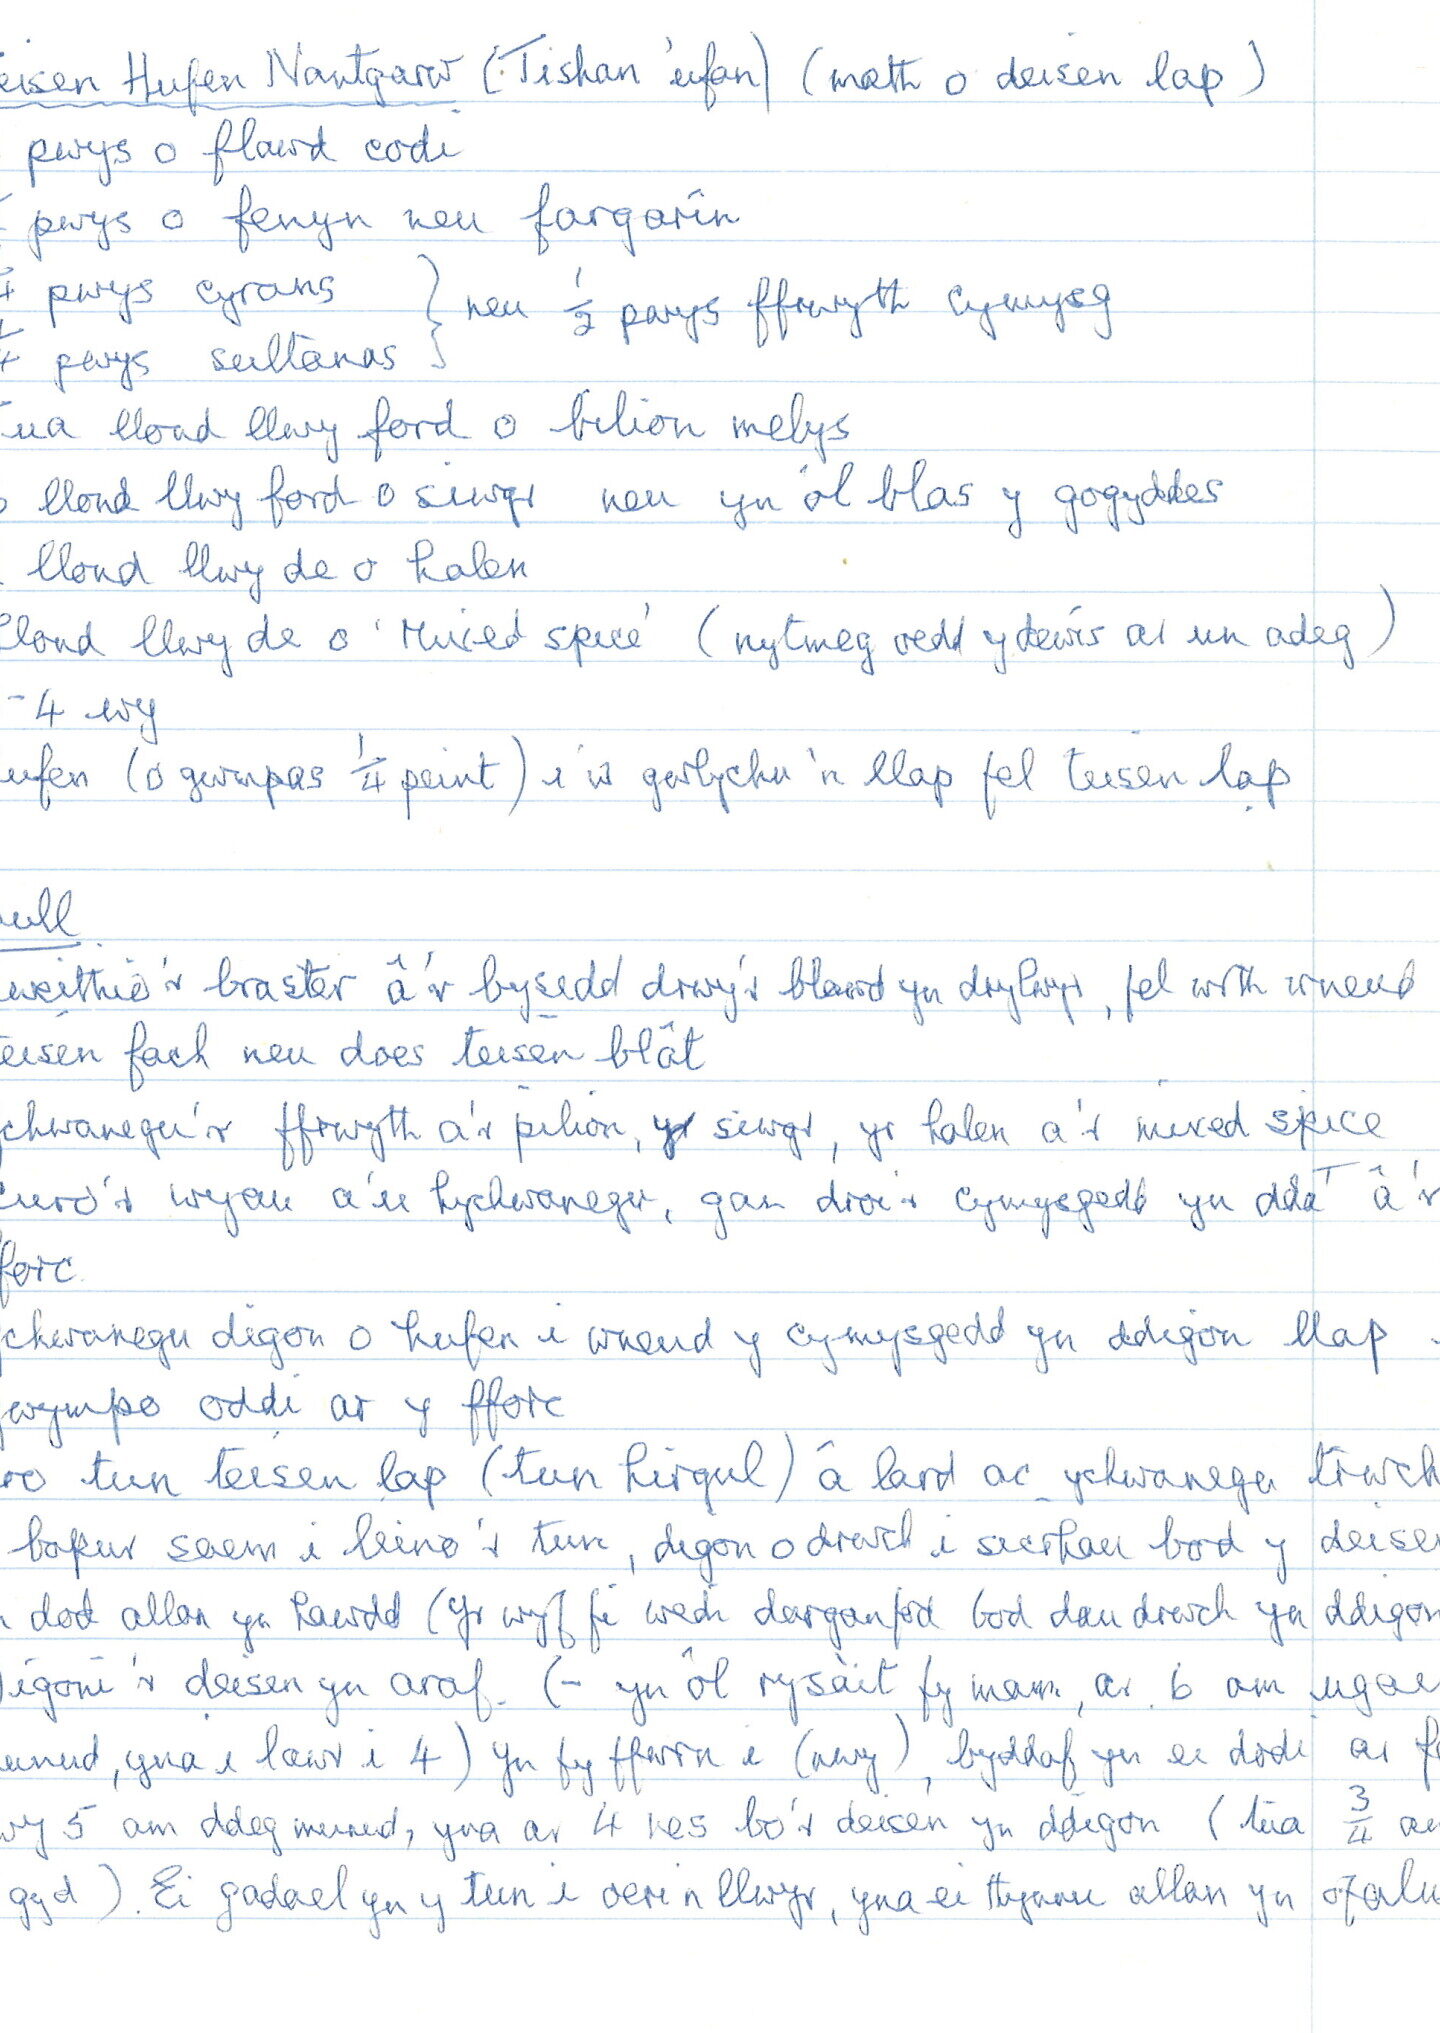 eisen Hufen Nantgarw (Tishan 'ufan) (math o deisen lap)
pwys o flawd codi
pwys o fenyn neu fargarîn
4 pwys cyrans } neu 1/2 pwys ffrwyth cymysg
4 pwys sultanas
ua llond llwy ford o bilion melys
llond llwy ford o siwgr neu yn ôl blas y gogyddes
llond llwy de o halen
llond llwy de o 'Mixed spice' (nytmeg oedd y dewis ar un adeg)
-4 wy
ufen (o gwmpas 1/4 peint) i'w gwlychu'n llap fel teisen lap
ull
weithio'r braster â'r bysedd drwy'r blawd yn drylwyr, fel wrth wneud
teisen fach neu does teisen blât
chwanegu'r ffrwyth a'r pilion, yr siwgr, yr halen a'r mixed spice
curo'r wyau a'u hychwanegu, gan droi'r cymysgedd yn dda â'r
fforc
chwanegu digon o hufen i wneud y cymysgedd yn ddigon llap
wympo oddi ar y fforc
ro tun teisen lap (tun hirgul) â lard ac ychwanegu trwch
bapur saem i leino'r tun, digon o drwch i sicrhau bod y deisen
dod allan yn hawdd (Yr wyf fi wedi darganfod bod dau drwch yn ddigon
igoni'r deisen yn araf. (- yn ôl rysáit fy mam, ar 6 am ugai
unud, yna i lawr i 4) Yn fy ffwrn i (nwy), byddaf yn ei dodi ar f
wy 5 am ddeg munud, yna ar 4 nes bo'r deisen yn ddigon (tua 3/4 aw
gyd). Ei gadael yn y tun i oeri'n llwyr, yna ei thynnu allan yn ofalu